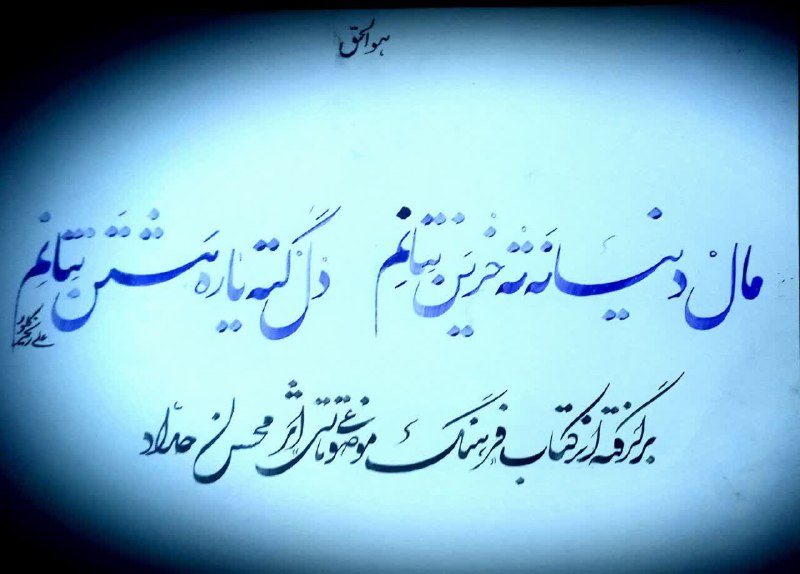 هو الحق
مال دنیا نه ته خرین نتانم دل گته یاره هشتن نتانم
برگرفته از کتاب فرهنگ موضوعی تاتی اثر محسن حداد